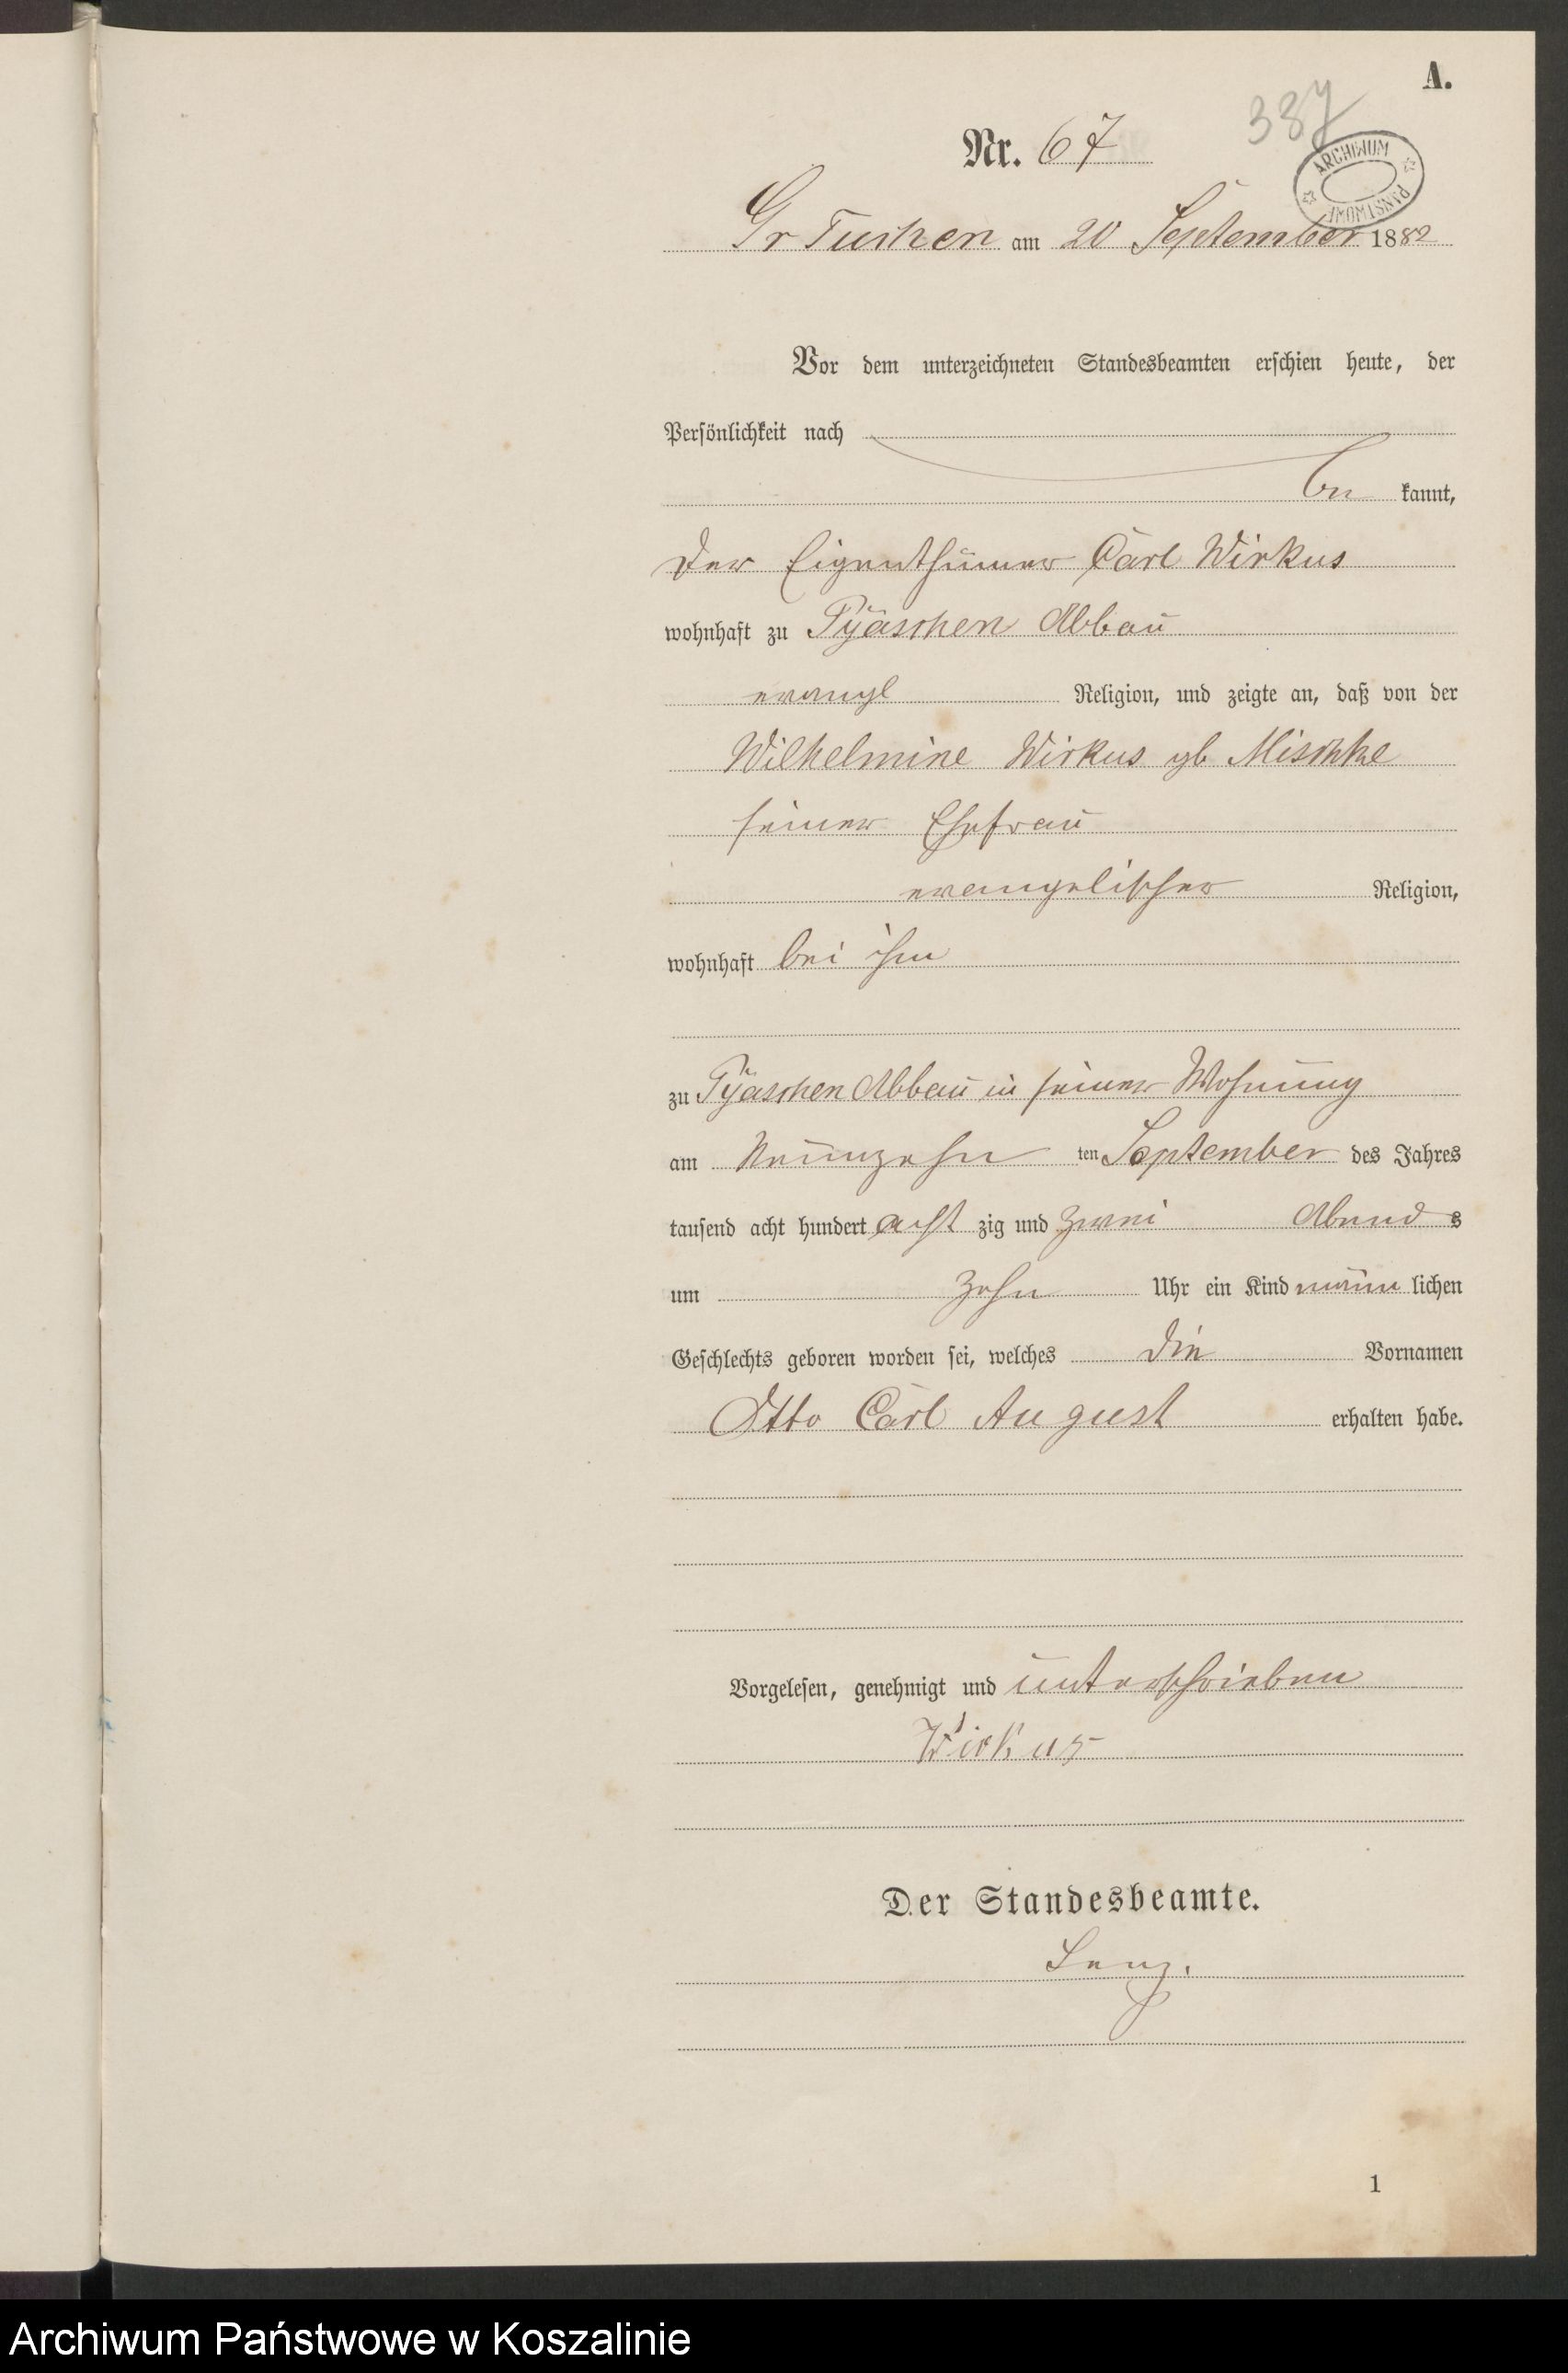 A.
387
Nr. 67
ARCHIWUM PAŃSTWOWE
Gr Tuchen am 20 September 1882
Vor dem unterzeichneten Standesbeamten erschien heute, der
Persönlichkeit nach
be kannt,
der Eigenthümer Carl Wirkus
wohnhaft zu Pyaschen Abbau
evangl Religion, und zeigte an, daß von der
Wilhelmine Wirkus gb Mischke
seiner Ehefrau
evangelischer Religion,
wohnhaft bei ihm
zu Pyaschen Abbau in seiner Wohnung
am Neunzehn ten September des Jahres
tausend acht hundert acht zig und zwei Abend s
um zehn Uhr ein Kind männ lichen
Geschlechts geboren worden sei, welches die Vornamen
Otto Carl August erhalten habe.
Vorgelesen, genehmigt und unterschrieben
Wirkus
Der Standesbeamte.
Lenz.
1
Archiwum Państwowe w Koszalinie